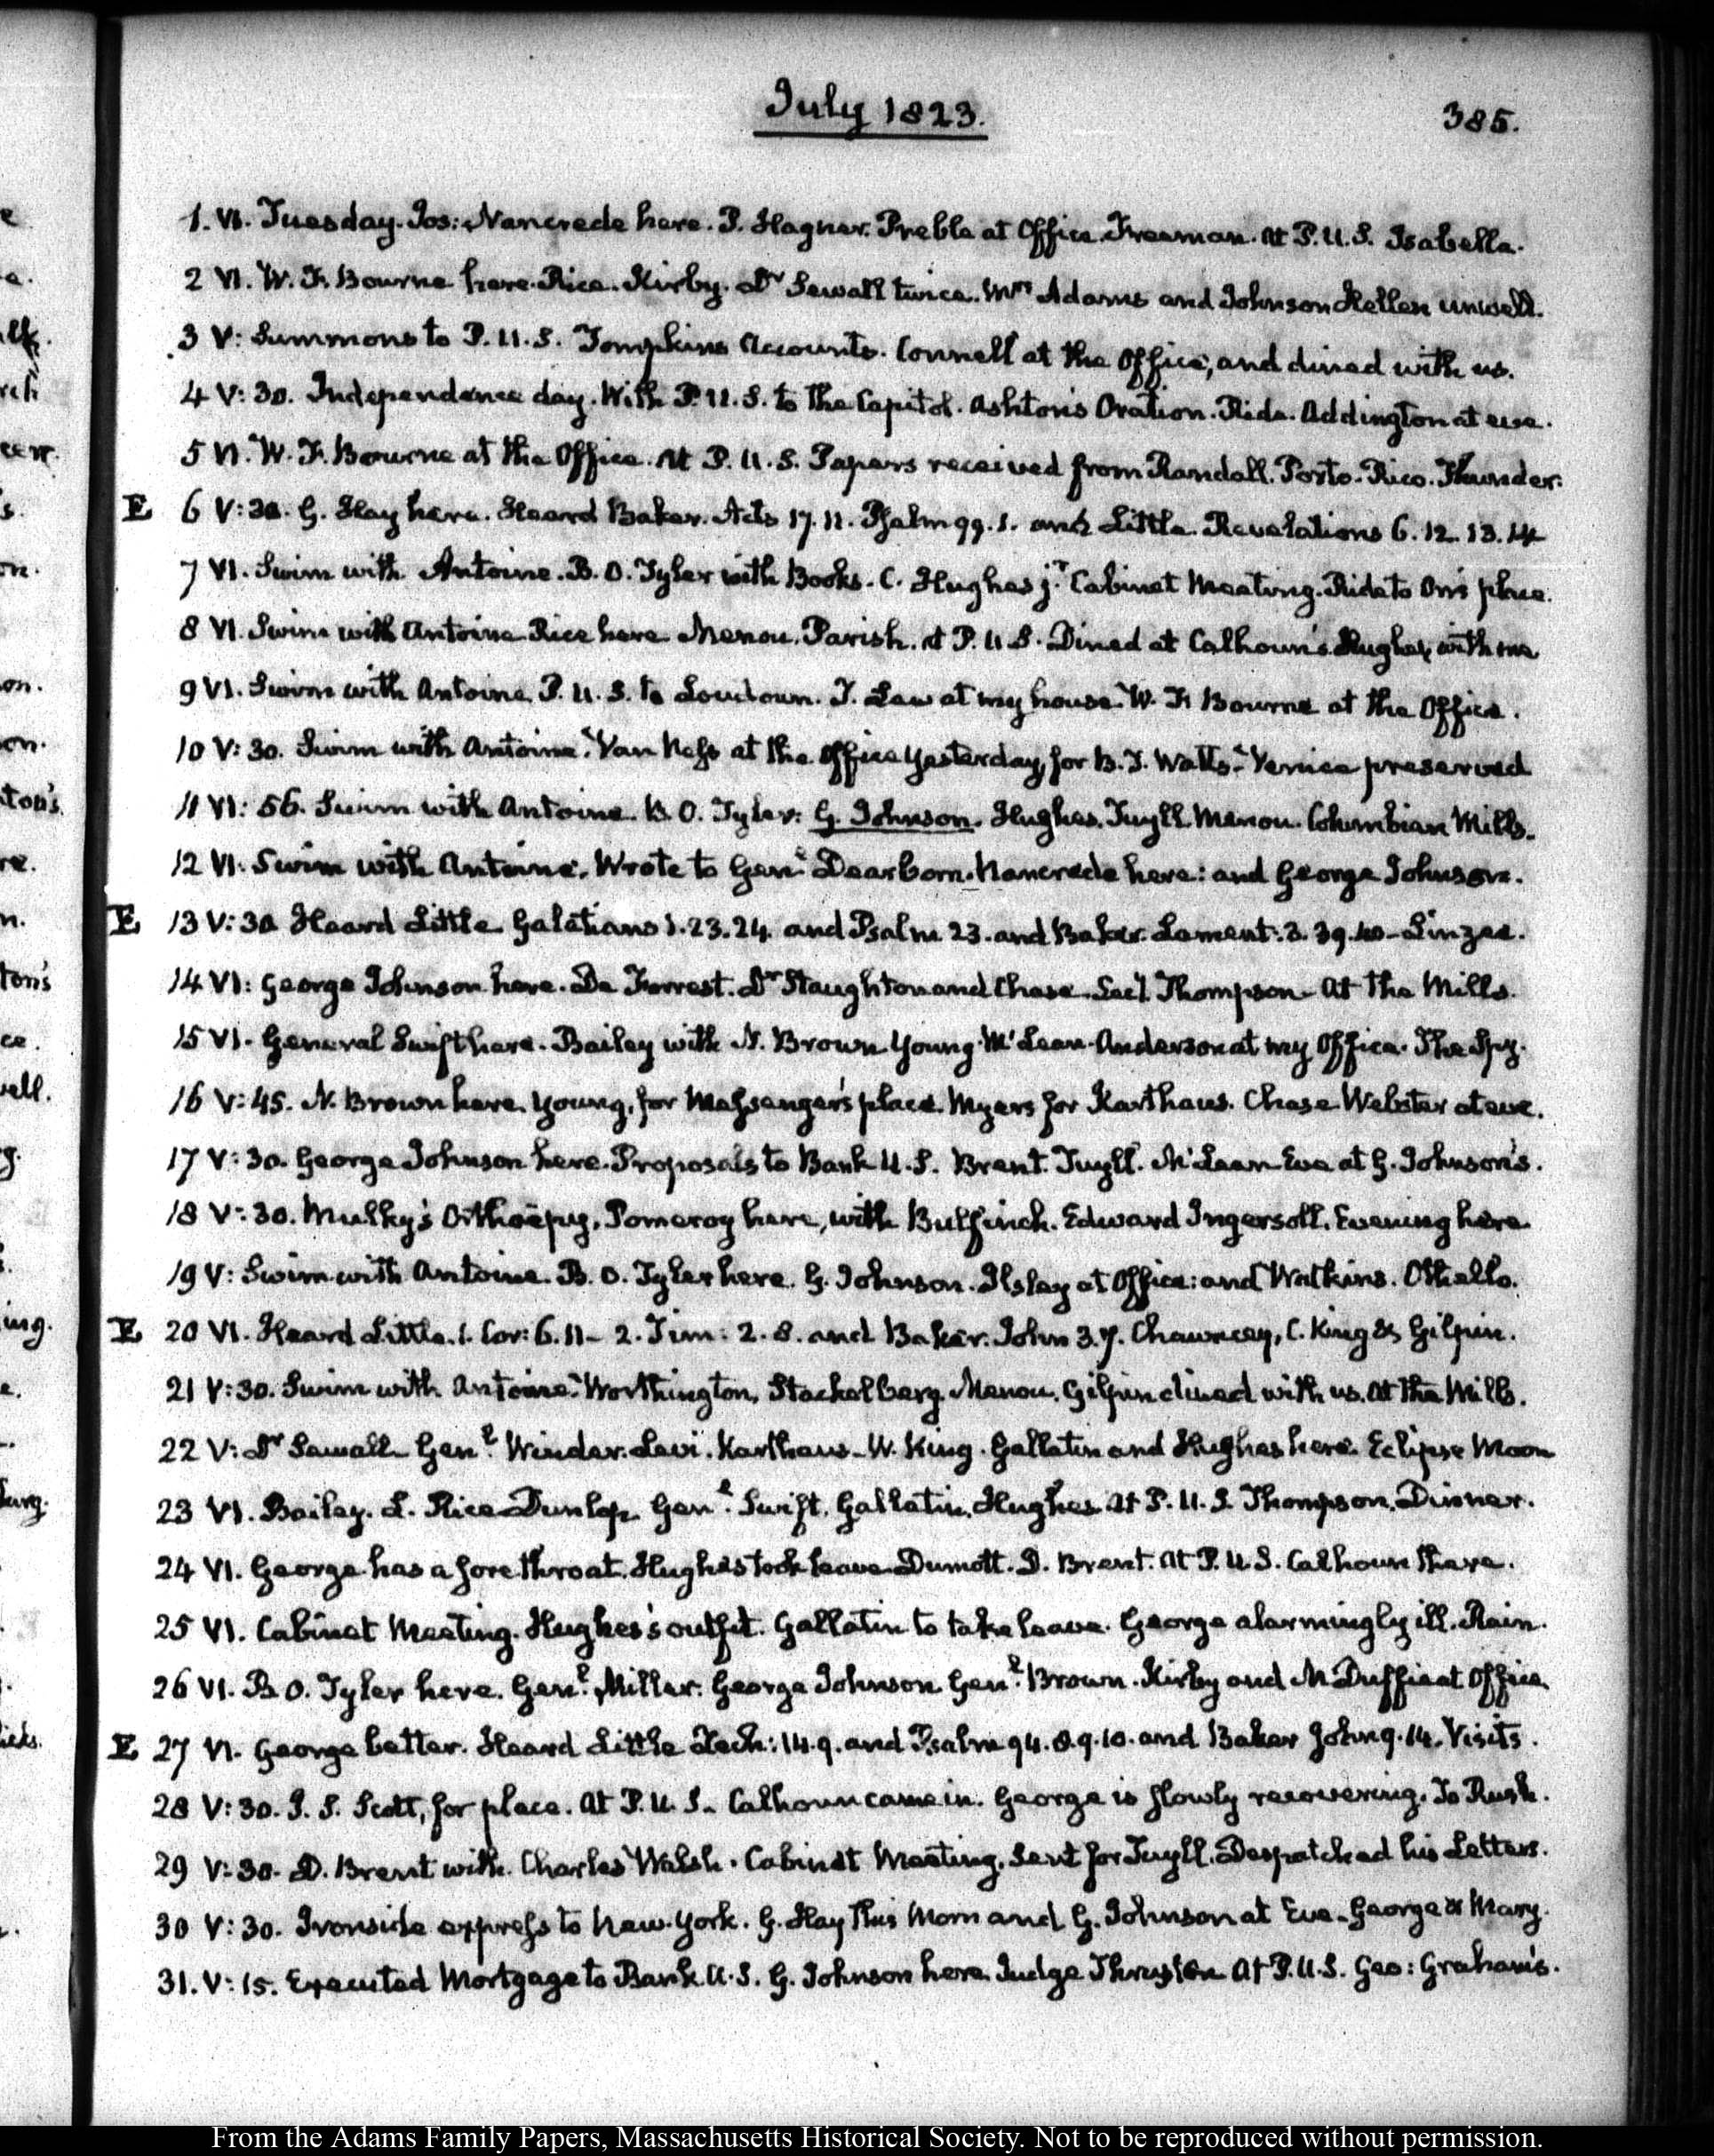 July 1823.
385.
1. VI. Tuesday. Jos: Nancrede here. P. Hagner. Preble at Office. Freeman. At P.U.S. Isabella.
2 VI. W. F. Bourne here. Rice. Kirby. Dr Sewall twice. Mrs Adams and Johnson Hellen unwell.
3 V: Summons to P.U.S. Tompkins Accounts. Connell at the Office, and dined with us.
4 V:30. Independence day. With P.U.S. to the Capitol. Ashton's Oration. Ride. Addington at eve.
5 VI. W. F. Bourne at the Office. At P.U.S. Papers received from Randall. Porto-Rico. Thunder.
E 6 V:30. G. Hay here. Heard Baker. Acts 17.11. Psalm 99.1. and Little. Revelations 6.12.13.14
7 VI. Swim with Antoine. B. O. Tyler with Books. C. Hughes jr. Cabinet Meeting. Ride to Orr's place.
8 VI. Swim with Antoine Rice here Menou. Parish. at P.U.S. Dined at Calhoun's. Hughes with me
9 VI. Swim with Antoine. P.U.S. to Loudoun. T. Law at my house. W. F. Bourne at the Office.
10 V:30. Swim with Antoine. Van Ness at the Office yesterday, for B. J. Watts. Venice preserved
11 VI:56. Swim with Antoine. B. O. Tyler. G. Johnson. Hughes. Tuyll. Menou. Columbian Mills.
12 VI. Swim with Antoine. Wrote to Genl. Dearborn. Nancrede here: and George Johnson.
E 13 V:30 Heard Little Galatians 1.23.24. and Psalm 23. and Baker. Lament: 3.39.40 - Linzee.
14 VI: George Johnson here. De Forrest. Dr Staughton and Chase. Secy. Thompson - At the Mills.
15 VI. General Swift here. Bailey with N. Brown Young. McLean. Anderson at my Office. The Spy.
16 V:45. N. Brown here. Young, for Messenger's place. Myers for Karthaus. Chase Webster at eve.
17 V:30. George Johnson here. Proposals to Bank U.S. Brent. Tuyll. McLean Eve at G. Johnson's.
18 V:30. Mulkey's Orthoepy. Pomeroy here, with Bulfinch. Edward Ingersoll. Evening here
19 V: Swim with Antoine. B. O. Tyler here. G. Johnson. Ilsley at Office: and Watkins. Othello.
E 20 VI. Heard Little. 1. Cor: 6.11 - 2. Tim: 2.8. and Baker. John 3.7. Chauncey, C. King & Gilpin.
21 V:30. Swim with Antoine. Worthington. Stackelberg. Menou. Gilpin dined with us. At the Mills.
22 V: Dr Sewall. Genl. Winder. Levi. Karthaus - W. King. Gallatin and Hughes here. Eclipse Moon
23 VI. Bailey. L. Rice Dunlap Genl. Swift. Gallatin. Hughes. At P.U.S. Thompson. Dinner.
24 VI. George has a sore throat. Hughes took leave. Dumott. D. Brent. At P.U.S. Calhoun there.
25 VI. Cabinet Meeting. Hughes's outfit. Gallatin to take leave. George alarmingly ill. Rain.
26 VI. B O. Tyler here. Genl. Miller. George Johnson. Genl. Brown. Kirby and McDuffie at Office.
E 27 VI. George better. Heard Little Zech: 14.9. and Psalm 94.8.9.10. and Baker John 9.14. Visits.
28 V:30. J. S. Scott, for place. At P.U.S. Calhoun came in. George is slowly recovering. To Rush.
29 V:30. D. Brent with Charles Walsh. Cabinet Meeting. Sent for Tuyll. Despatched his Letters.
30 V:30. Ironside express to New-York. G. Hay this Morn and G. Johnson at Eve. George & Mary.
31. V:15. Executed Mortgage to Bank U.S. G. Johnson here. Judge Thruston At P.U.S. Geo: Graham's.
From the Adams Family Papers, Massachusetts Historical Society. Not to be reproduced without permission.